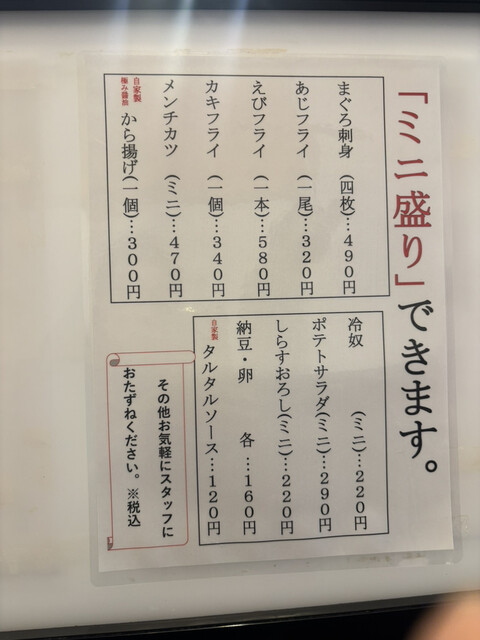 「ミニ盛り」できます。
まぐろ刺身 (四枚)…490円
あじフライ (一尾)…320円
えびフライ (一本)…580円
カキフライ (一個)…340円
メンチカツ (ミニ)…470円
自家製
極み醤油
から揚げ(一個)…300円
冷奴 (ミニ)…220円
ポテトサラダ(ミニ)…290円
しらすおろし(ミニ)…220円
納豆・卵 各…160円
自家製
タルタルソース…120円
その他お気軽にスタッフに
おたずねください。※税込